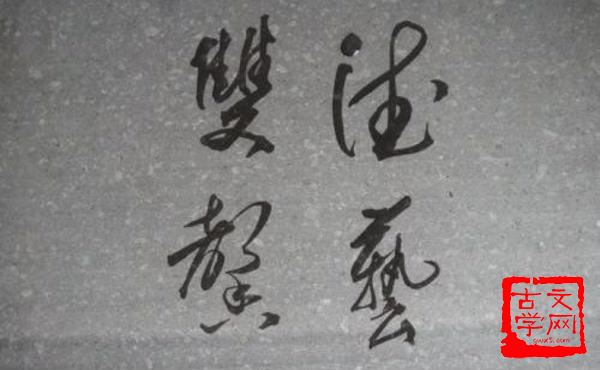 德藝
雙馨
古文
学网
gwx5.com